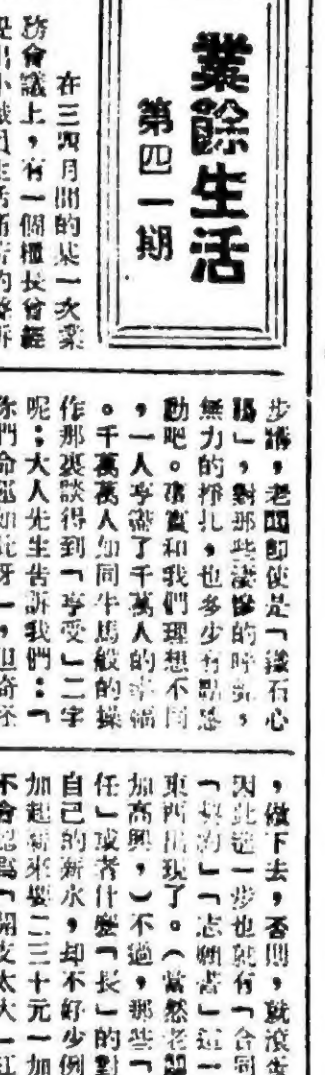 業餘生活
第四一期
在三四月間的某一次業
務會議上，有一個櫃長曾經
步講，老闆即使是「鐵石心
腸」，對那些淒慘的呼號，
無力的掙扎，也多少有點感
動吧。事實和我們理想不同
，一人享盡了千萬人的幸福
。千萬萬人如同牛馬般的操
作那裏談得到「享受」二字
呢：大人先生告訴我們：「
你們命運如此呀」，但奇怪
，做下去，否則，就滾蛋
因此進一步也就有「合同
「契約」「志願書」這一
東西出現了。（當然老闆
加高興，）不過，那些「
任」或者什麼「長」的對
自己的薪水，却不好少例
加起薪來要二三十元一加
不會認為「開支太大」紅